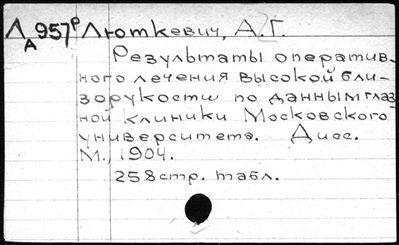 Л А 957 Р Люткевич, А.Г.
Результаты оператив-
ного лечения высокой бли-
зорукости по данным глаз-
ной клиники Московского
университета. Дисс.
М., 1904.
258 стр. табл.